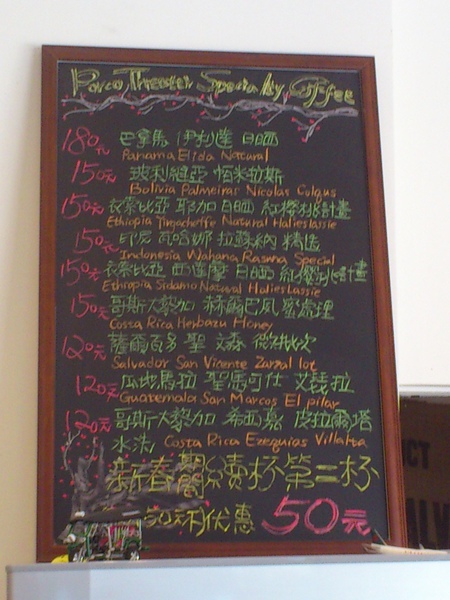 Poco Theater Specialty Coffee
180元 巴拿馬 伊利達 日曬
Panama Elida Natural
150元 玻利維亞 帕米拉斯
Bolivia Palmeiras Nicolas Colgus
150元 衣索比亞 耶加 日曬 紅櫻桃計畫
Ethiopia Yirgacheffe Natural Halieslassie
150元 印尼 瓦哈娜 拉蘇納 精選
Indonesia Wahana Rasuna Special
150元 衣索比亞 西達摩 日曬 紅櫻桃計畫
Ethiopia Sidamo Natural Halieslassie
150元 哥斯大黎加 赫爾巴夙 蜜處理
Costa Rica Herbazu Honey
120元 薩爾瓦多 聖 文森 微批次
Salvador San Vicente Zarzal lot
120元 瓜地馬拉 聖馬可仕 艾琵拉
Guatemala San Marcos El pilar
120元 哥斯大黎加 希西嘉 皮拉爾塔
水洗 Costa Rica Ezequias Villalta
新春期間續杯第二杯
50元